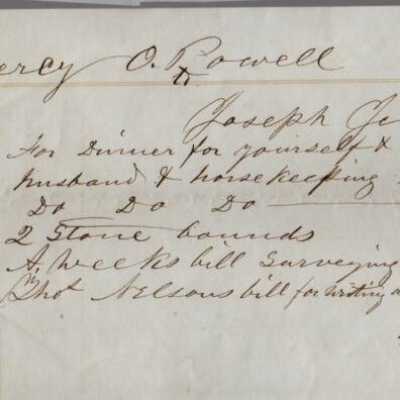 ercy O. Powell
Joseph Je
For Dinner for yourself &
husband & horsekeeping
Do Do Do
2 Stone bounds
A. Weeks bill Surveying
Nelsons bill for writing